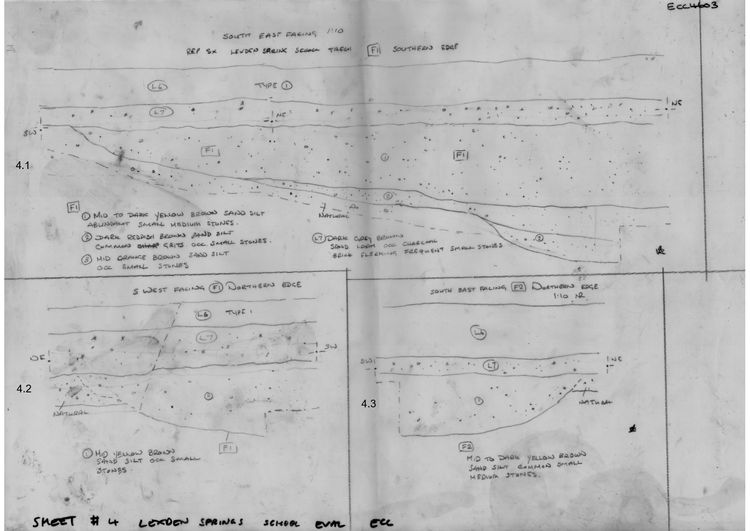 ECC4603
SOUTH EAST FACING 1:10
REP SX LEXDEN SPRING SCHOOL TRENCH F1 SOUTHERN EDGE
L6 TYPE 1
L7
NE
NE
SW
4.1
F1
1
F1
2
NATURAL
3
F1
1 MID TO DARK YELLOW BROWN SAND SILT
ABUNDANT SMALL MEDIUM STONES.
2 DARK REDDISH BROWN SAND SILT
COMMON GRITS OCC SMALL STONES.
3 MID ORANGE BROWN SAND SILT
OCC SMALL STONES
L7 DARK GREY BROWN
SAND LOAM OCC CHARCOAL
BRICK FLECKING FREQUENT SMALL STONES
S WEST FACING F1 NORTHERN EDGE
L6 TYPE 1
L7
NE
SW
4.2
1
NATURAL
F1
1 MID YELLOW BROWN
SAND SILT OCC SMALL
STONES
SOUTH EAST FACING F2 NORTHERN EDGE
1:10
L6
SW
L7
NE
4.3
1
NATURAL
F2
MID TO DARK YELLOW BROWN
SAND SILT COMMON SMALL
MEDIUM STONES.
SHEET # 4 LEXDEN SPRINGS SCHOOL EVAL ECC